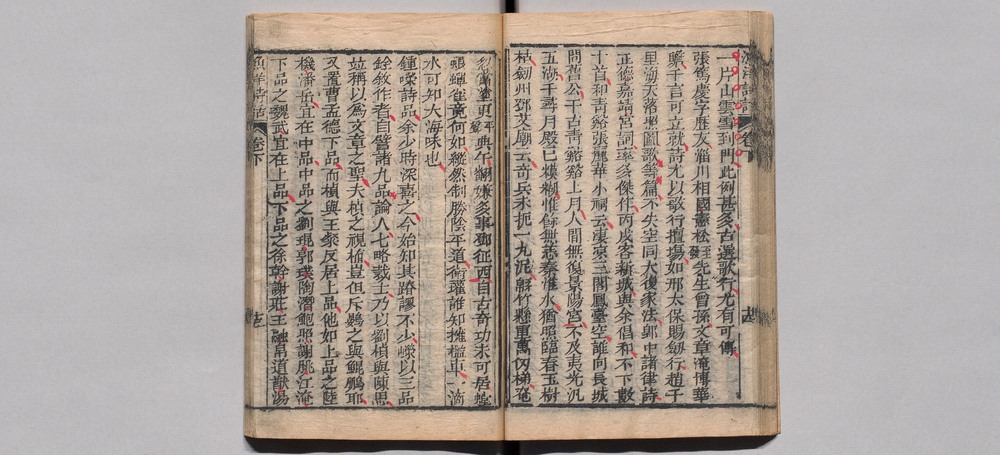 漁洋詩話
卷下
一片山雲雪到門此例甚多古選歌行尤有可傳
張篤慶字歷友淄川相國憲松王發先生曾孫文章淹博華
贍千言可立就詩尤以歌行擅場如邢太保賜劍行趙千
里海天落照圖歌等篇不失空同大復家法郢中諸律詩
正德嘉靖宮詞率多傑作丙戌客新城與余倡和不下數
十首和青谿張麗華小祠云淒寂三閣鳳臺空誰向長城
問舊公千古青谿谿上月人間無復景陽宮不及夷光汎
五湖千尋月殿已模糊惟餘無恙秦淮水猶照臨春玉樹
枯劍州鄧艾廟云奇兵未扼一九泥解竹懸車萬仞梯
更典午 鄧征西自古奇功未可居
崔竟何如縱然制勝陰平道衛瓘誰知擁檻車一滴
水可知大海味也
鍾嶸詩品余少時深喜之今始知其踳謬不少嶸以三品
銓敘作者自譬諸九品論人七略裁士乃以劉楨與陳思
並稱以為文章之聖夫楨之視植豈但斥鷃之與鯤鵬耶
又置曹孟德下品而楨與王粲反居上品他如上品之陸
機潘岳宜在中品中品之劉琨郭璞陶潛鮑照謝朓江淹
下品之魏武宜在上品下品之徐幹謝莊王融帛道猷湯
漁洋詩話
卷下